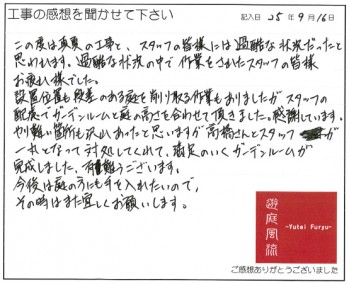 工事の感想を聞かせて下さい
記入日 25年 9月 16日
この度は真夏の工事と、スタッフの皆様には過酷な状況だったと
思われます。過酷な状況の中で作業をされたスタッフの皆様
お疲れ様でした。
設置位置も段差のある庭を削り取る作業もありましたがスタッフの
配慮でガーデンルームと庭の高さを合わせて頂きました。感謝しています。
やり難い箇所も沢山あったと思いますが高橋さんとスタッフが
一丸となって対処してくれて、満足のいくガーデンルームが
完成しました。有難うございます。
今後は庭の方にも手を入れたいので、
その時はまた宜しくお願いします。
遊庭風流
-Yutei Furyu-
ご感想ありがとうございました